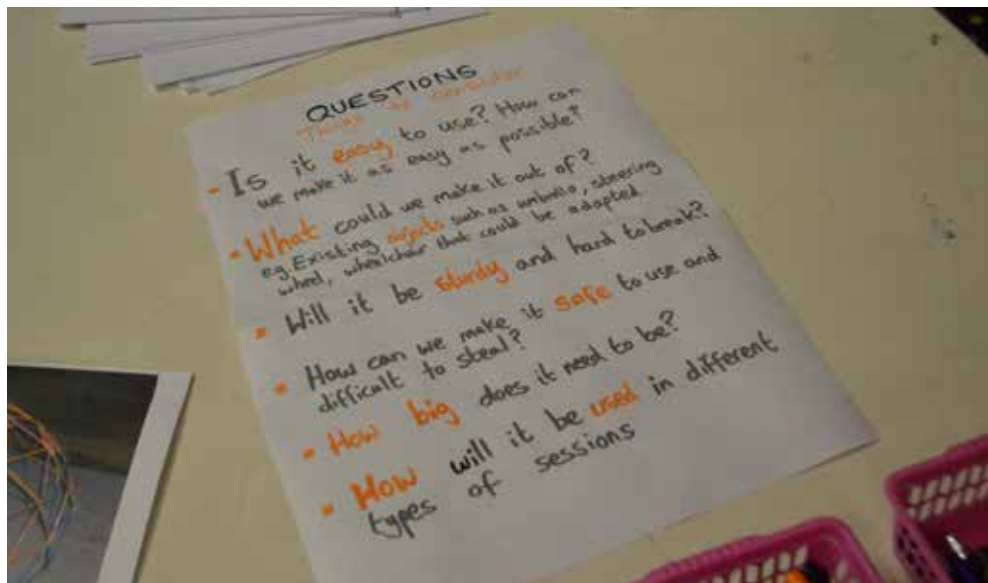 QUESTIONS
Things to consider
- Is it easy to use? How can
we make it as easy as possible?
- What could we make it out of?
eg. Existing objects such as umbrella, steering
wheel, wheelchair that could be adapted
- Will it be sturdy and hard to break?
- How can we make it safe to use and
difficult to steal?
- How big does it need to be?
- How will it be used in different
types of sessions